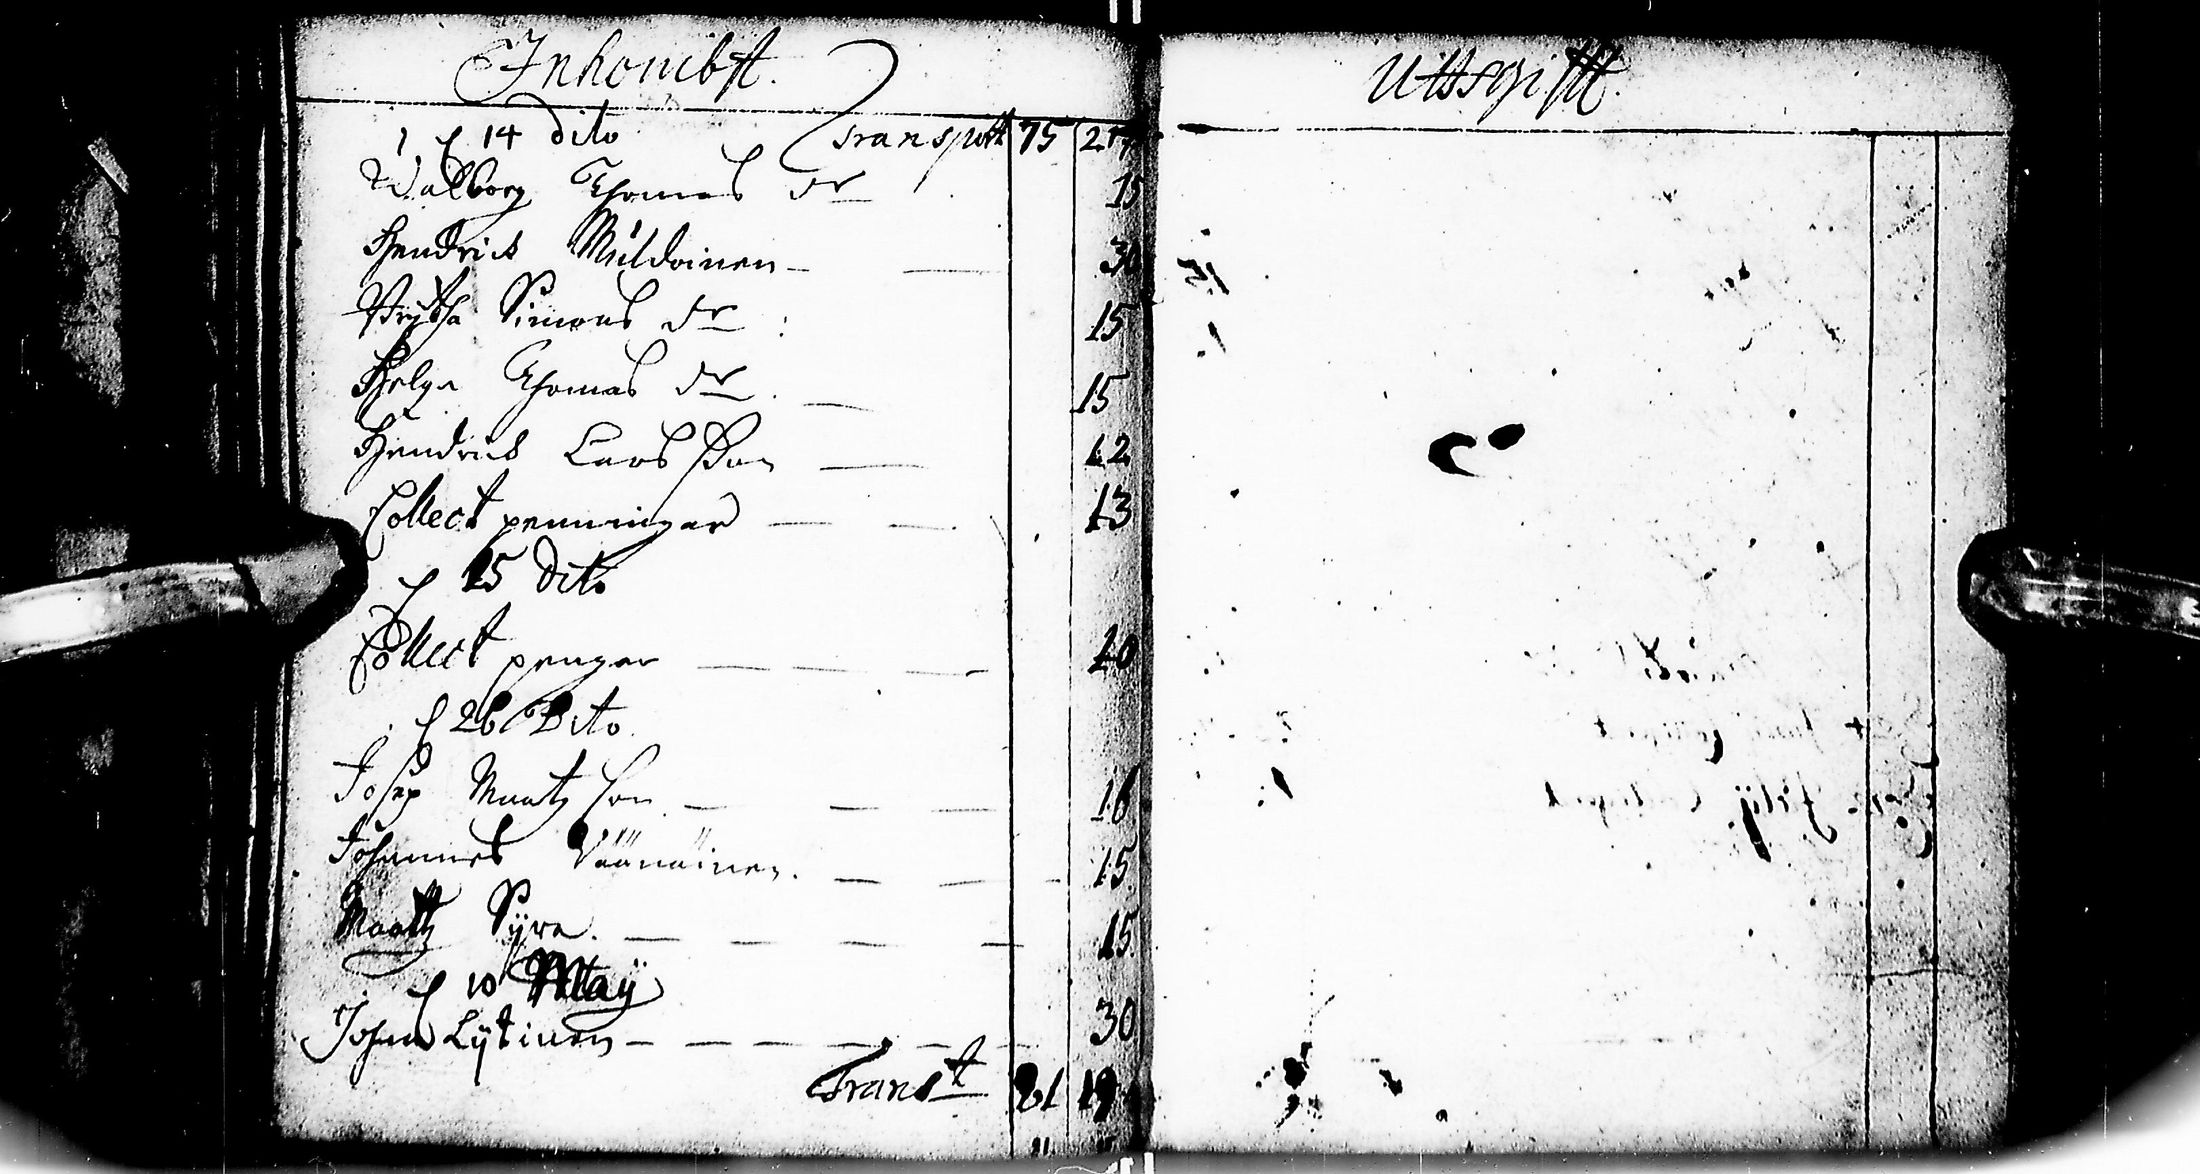 Inkombst.
1 d 14 dito Transport 75 27
Walborg Thomas dr 15
Hendrick Muldoinen 30
Brytha Simons dr 15
Helga Thomas dr 15
Hendrick Lars Son 12
Collect penningar 13
d 25 dito
Collect pengar 20
d 26 Dito
Josep Maatz son 16
Johannes Väänäinen 15
Maattz Syre 15
d 10 Maÿ
Johan Lÿtinen 30
Transt 81 19
Uttsgifft.